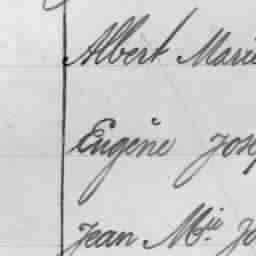 Albert Marie
Eugène Jos
Jean M^ie Jo